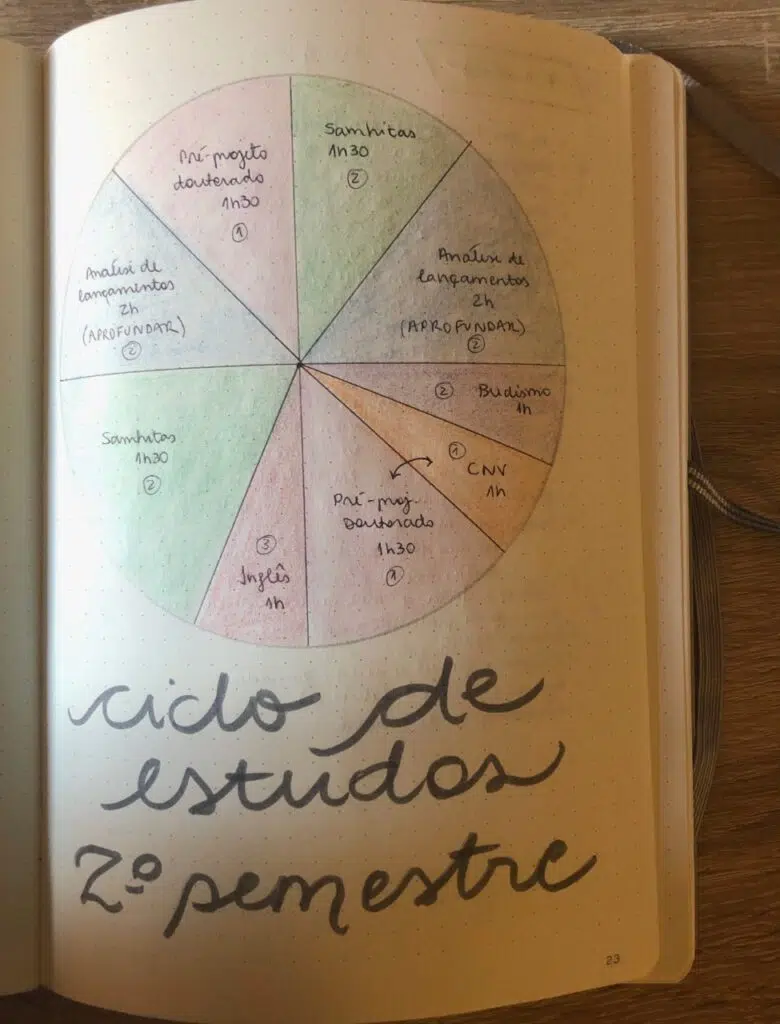 Samhitas
1h30
2
Análise de
lançamentos
2h
(APROFUNDAR)
2
2 Budismo
1h
1
CNV
1h
Pré-proj.
Doutorado
1h30
1
3
Inglês
1h
Samhitas
1h30
2
Análise de
lançamentos
2h
(APROFUNDAR)
2
Pré-projeto
doutorado
1h30
1
ciclo de
estudos
2º semestre
23